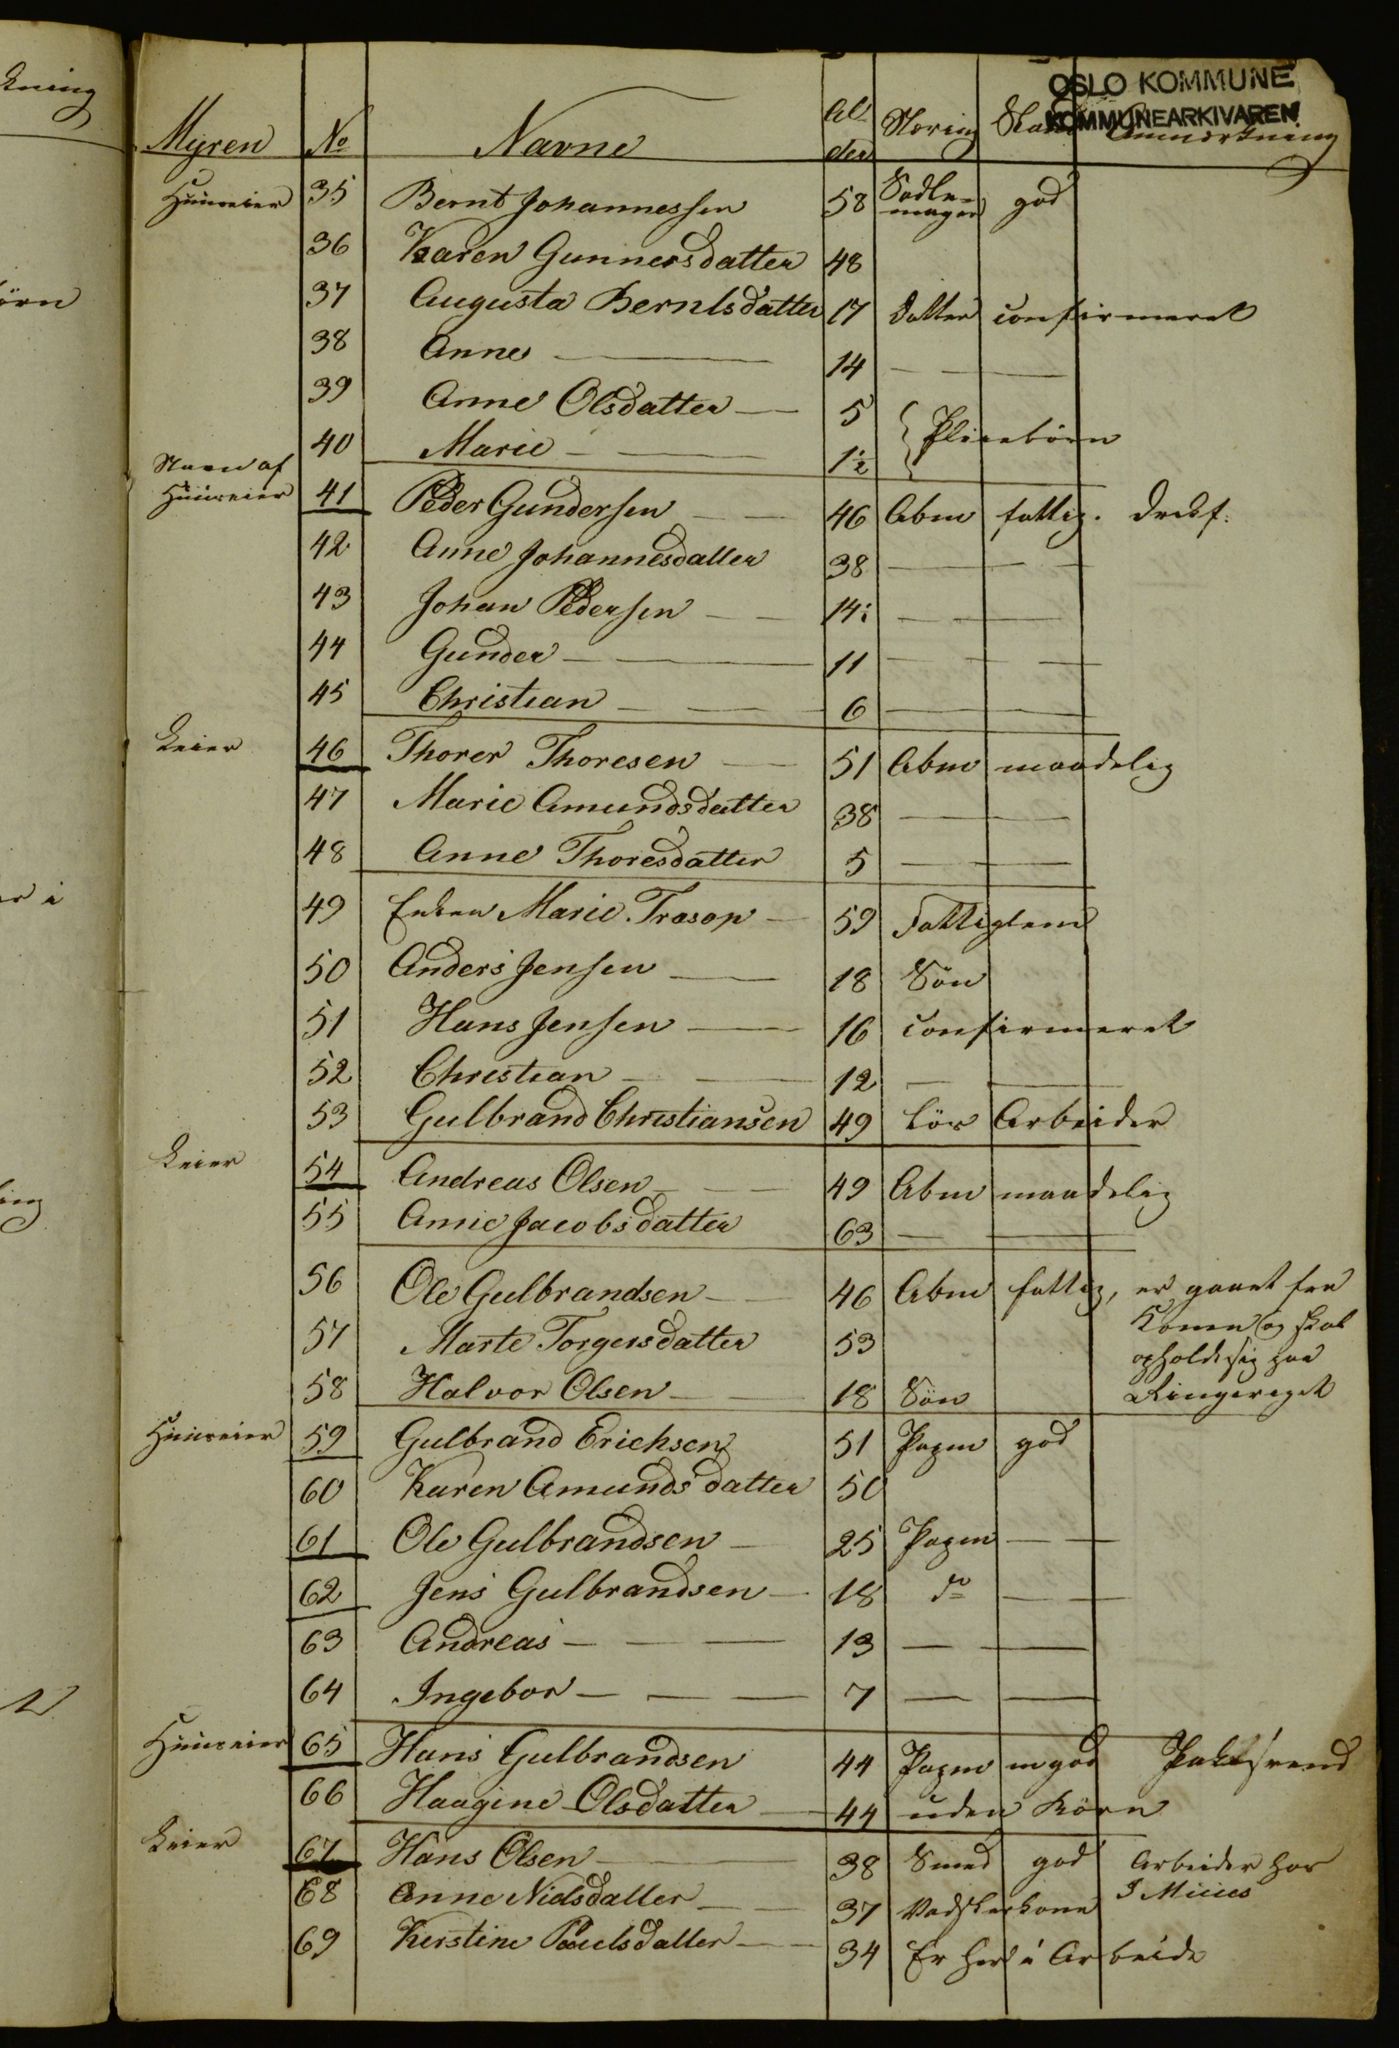 OSLO KOMMUNE
KOMMUNEARKIVAREN
Myren No Navne Alder Næring Kaar Anmærkning
Huuseier 35 Bernt Johannessen 58 Sadelmager god
36 Karen Gunnersdatter 48
37 Augusta Berntsdatter 17 datter confirmeret
38 Anne — 14 — —
39 Anne Olsdatter — 5
40 Marie — — 1½ } Pleiebørn
Navn af
Huuseier 41 Peder Gundersen — 46 Abm fattig.
42 Anne Johannesdatter 38 — —
43 Johan Pedersen — 14 — —
44 Gunder — — 11 — — —
45 Christian — — 6 — —
Leier 46 Thorer Thoresen — 51 Abm maadelig
47 Marie Amundsdatter 38 — —
48 Anne Thoresdatter 5 — —
49 Enken Marie Trasop — 59 Fattiglem
50 Anders Jensen — 18 Søn
51 Hans Jensen — 16 confirmeret
52 Christian — — 12 — —
53 Gulbrand Christiansen 49 Løs Arbeider
Leier 54 Andreas Olsen — — 49 Abm maadelig
55 Anne Jacobsdatter 63 — —
56 Ole Gulbrandsen — 46 Abm fattig, er gaaet fra
Konen og skal
57 Marte Torgersdatter 53 opholde sig paa
58 Halvor Olsen — 18 Søn Ringeriget
Huuseier 59 Gulbrand Erichsen 51 Papm god
60 Karen Amundsdatter 50
61 Ole Gulbrandsen — 25 Papm — —
62 Jens Gulbrandsen — 18 do — —
63 Andreas — — 13 — —
64 Ingebor — — — 7 — —
Huuseier 65 Hans Gulbrandsen 44 Papm m god
66 Haagine Olsdatter — 44 uden Børn
Leier 67 Hans Olsen — 38 Smed god Arbeider hos
68 Anne Nielsdatter — — 37 Vadskerkone
69 Kerstine Paulsdatter — 34 Er her i Arbeide